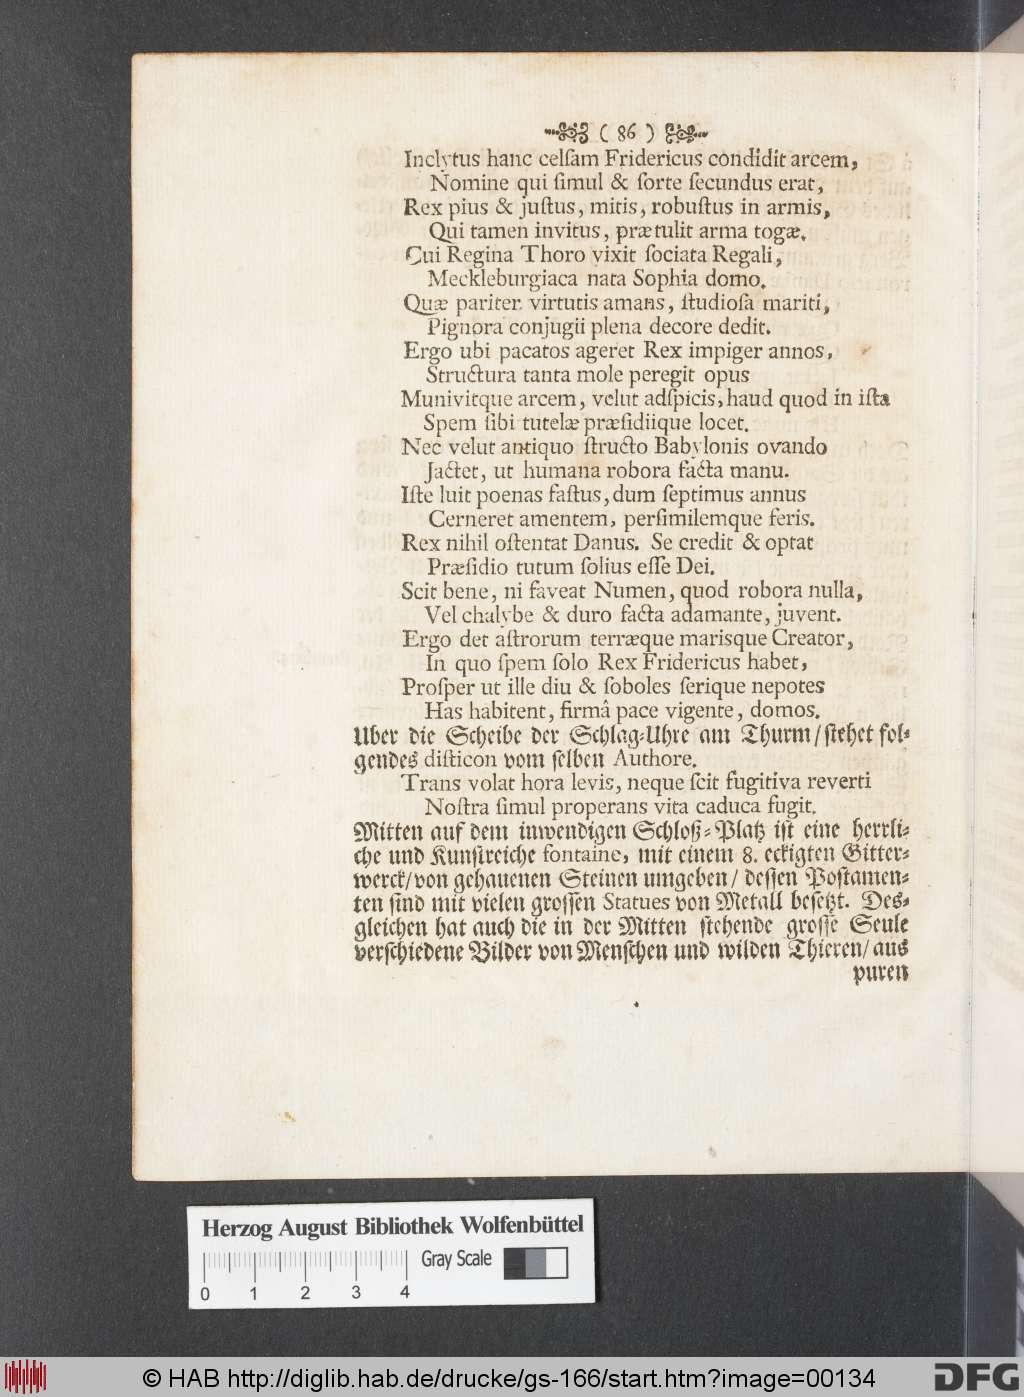 ( 86 )
Inclytus hanc celſam Fridericus condidit arcem,
Nomine qui ſimul & ſorte ſecundus erat,
Rex pius & juſtus, mitis, robuſtus in armis,
Qui tamen invitus, prætulit arma togæ.
Cui Regina Thoro vixit ſociata Regali,
Meckleburgiaca nata Sophia domo.
Quæ pariter virtutis amans, ſtudioſa mariti,
Pignora conjugii plena decore dedit.
Ergo ubi pacatos ageret Rex impiger annos,
Structura tanta mole peregit opus
Munivitque arcem, velut adſpicis, haud quod in iſta
Spem ſibi tutelæ præſidiique locet.
Nec velut antiquo ſtructo Babylonis ovando
Jactet, ut humana robora facta manu.
Iſte luit poenas faſtus, dum ſeptimus annus
Cerneret amentem, perſimilemque feris.
Rex nihil oſtentat Danus. Se credit & optat
Præſidio tutum ſolius eſſe Dei.
Scit bene, ni faveat Numen, quod robora nulla,
Vel chalybe & duro facta adamante, juvent.
Ergo det aſtrorum terræque marisque Creator,
In quo ſpem ſolo Rex Fridericus habet,
Proſper ut ille diu & ſoboles ſerique nepotes
Has habitent, firmâ pace vigente, domos.
Uber die Scheibe der Schlag-Uhre am Thurm/ ſtehet fol-
gendes diſticon vom ſelben Authore.
Trans volat hora levis, neque ſcit fugitiva reverti
Noſtra ſimul properans vita caduca fugit.
Mitten auf dem inwendigen Schloß-Platz iſt eine herrli-
che und Kunſtreiche fontaine, mit einem 8. eckigten Gitter-
werck/ von gehauenen Steinen umgeben/ deſſen Poſtamen-
ten ſind mit vielen groſſen Statues von Metall beſetzt. Des-
gleichen hat auch die in der Mitten ſtehende groſſe Seule
verſchiedene Bilder von Menſchen und wilden Thieren/ aus
puren
Herzog August Bibliothek Wolfenbüttel
Gray Scale
0 1 2 3 4
© HAB http://diglib.hab.de/drucke/gs-166/start.htm?image=00134
DFG